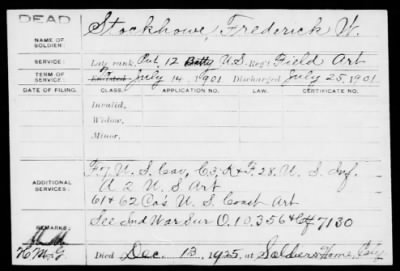 DEAD
NAME OF SOLDIER: Stockhowe, Frederick W.
SERVICE: Late rank, Pvt. 12 Batty U.S. Reg't Field Art
TERM OF SERVICE: Enlisted July 14, 1901 Discharged July 25, 1901
DATE OF FILING. CLASS. APPLICATION NO. LAW. CERTIFICATE NO.
Invalid,
Widow,
Minor,
ADDITIONAL SERVICES: F 7 U. S. Cav, C 3, K & F. 28. U. S. Inf.
A 2 U. S. Art
61 & 62 Co's U. S. Coast Art
REMARKS: See Ind War Sur O. 10,356 & 7130
Died Dec. 13, 1925, at Soldiers Home,